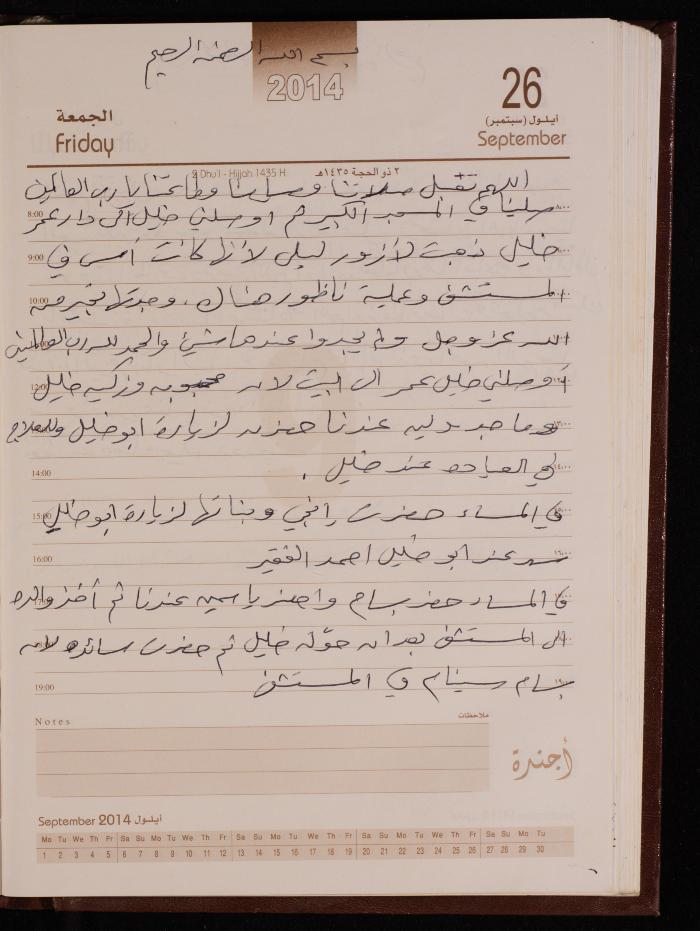 بسم الله الرحمن الرحيم
2014
26
أيلول (سبتمبر)
September
الجمعة
Friday
2 Dhu'l - Hijjah 1435 H ٢ ذو الحجة ١٤٣٥هـ
اللهم تقبل صلاتنا وصيامنا وطاعتنا يا رب العالمين
8:00 صلينا في المسجد الكبير ثم اوصلني خليل الى دار عمر
9:00 خليل ذهبت لأزور ليلى لأنها كانت أمس في
10:00 المستشفى وعملية ناظور هناك، وجدتها بخير من
الله عز وجل ولم يجدوا عندها شيئ والحمد لله رب العالمين
12:00 أوصلني خليل عمر الى البيت لان محبوبه وزكيه خليل
وماجد عندنا حضرن لزيارة ابو خليل وللعلاج
14:00 في العياده عند خليل .
15:00 في المساء حضرت راجي وبناتها لزيارة ابو خليل
16:00 عند ابو خليل احمد الفقير
في المساء حضر بسام واحضر ياسمين عندنا ثم أخذ والده
الى المستشفى بعد ان حوله خليل ثم حضرت سائده لان
19:00 بسام سينام في المستشفى
Notes ملاحظات
أجندة
September 2014 أيلول
Mo Tu We Th Fr Sa Su Mo Tu We Th Fr Sa Su Mo Tu We Th Fr Sa Su Mo Tu We Th Fr Sa Su Mo Tu
1 2 3 4 5 6 7 8 9 10 11 12 13 14 15 16 17 18 19 20 21 22 23 24 25 26 27 28 29 30